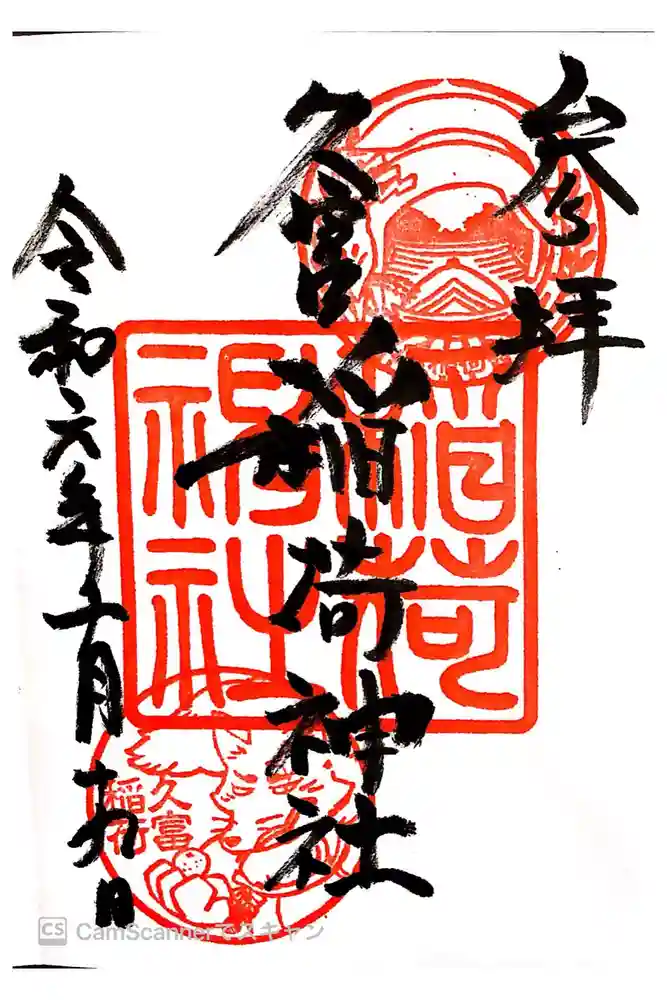 参拝
久富稲荷神社
令和六年十一月十九日
稲荷
神社
久富
稲荷
CS CamScannerでスキャン